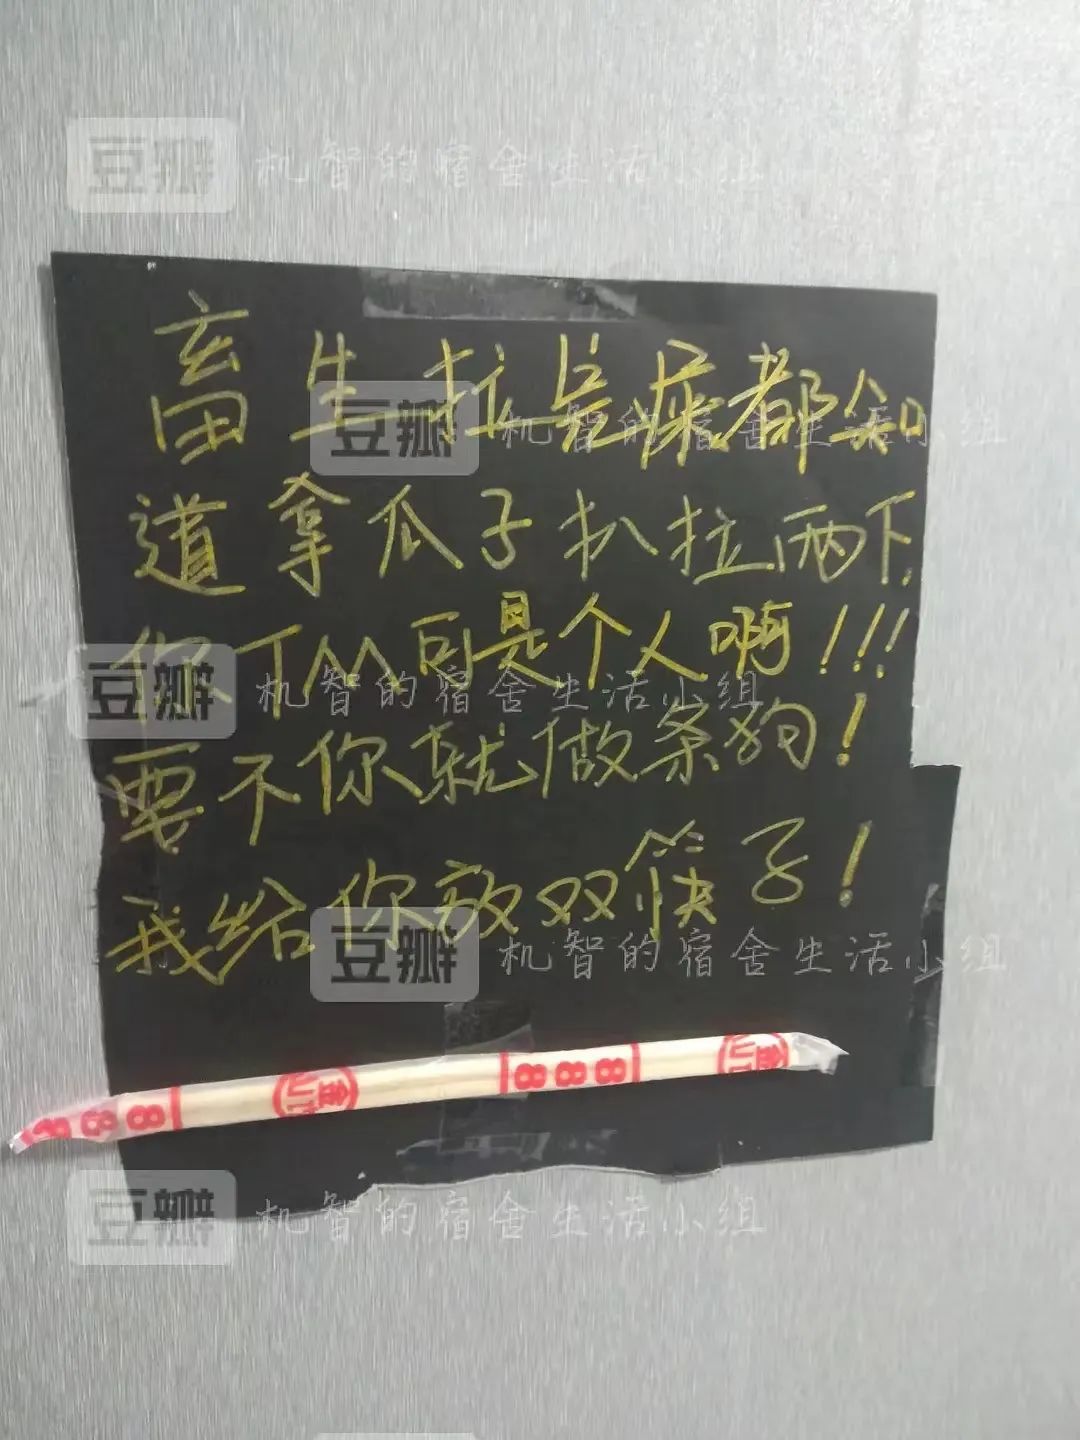 豆瓣 机智的宿舍生活小组
畜生拉完屎都知
豆瓣 机智的宿舍生活小组
道拿瓜子扒拉两下
你TM可是个人啊!!!
豆瓣 机智的宿舍生活小组
要不你就做条狗!
我给你放双筷子!
豆瓣 机智的宿舍生活小组
888 888
豆瓣 机智的宿舍生活小组